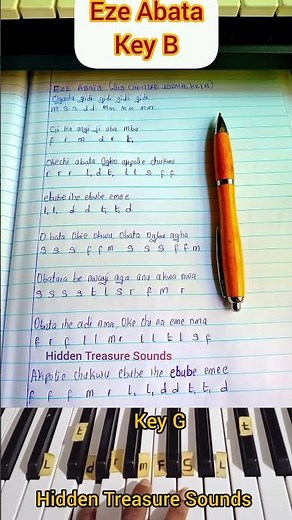 Eze Abata
Key B
EZE ABATA (BIS CHIMUZE UDUMA KEY B)
Ogada gidi gidi gidi gidi
m s s d d m m m m m m
Gi ka anyi ji aba mba
f r m d r t,
Okechi abata Ogho appolie chukwu
r r r t, d t, l l s f f
ebube ihe ebube emee
t, t, d d t, t, d
O bata Obie okwu, Obata Oghu agha
s s s f f m s s s f f m
Obatara be nwanyi aga anu akwa nwa
s s s s t l s r f m r
Obata ihe adi nma, Oke Chi na eme nma
f r f l l m r l l t l s f
Hidden Treasure Sounds
Akpolie Chukwu ebube ihe ebube emee
f f f m r t, t, d d t, t, d
Key G
t
L d m F S L
Hidden Treasure Sounds